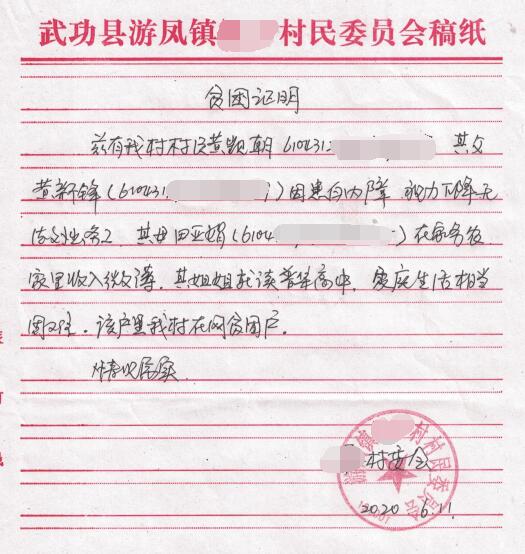 武功县游凤镇 村民委员会稿纸
贫困证明
兹有我村村民黄凯朝610431 其父
黄新锋(610431 )因患白内障 视力下降无
法外出务工 其母田亚娟(61043 )在家务农
家里收入微薄.其姐姐就读普集高中,家庭生活相当
困难.该户是我村在网贫困户.
情况属实
村委会
2020 6.11
游凤镇 村村民委员会